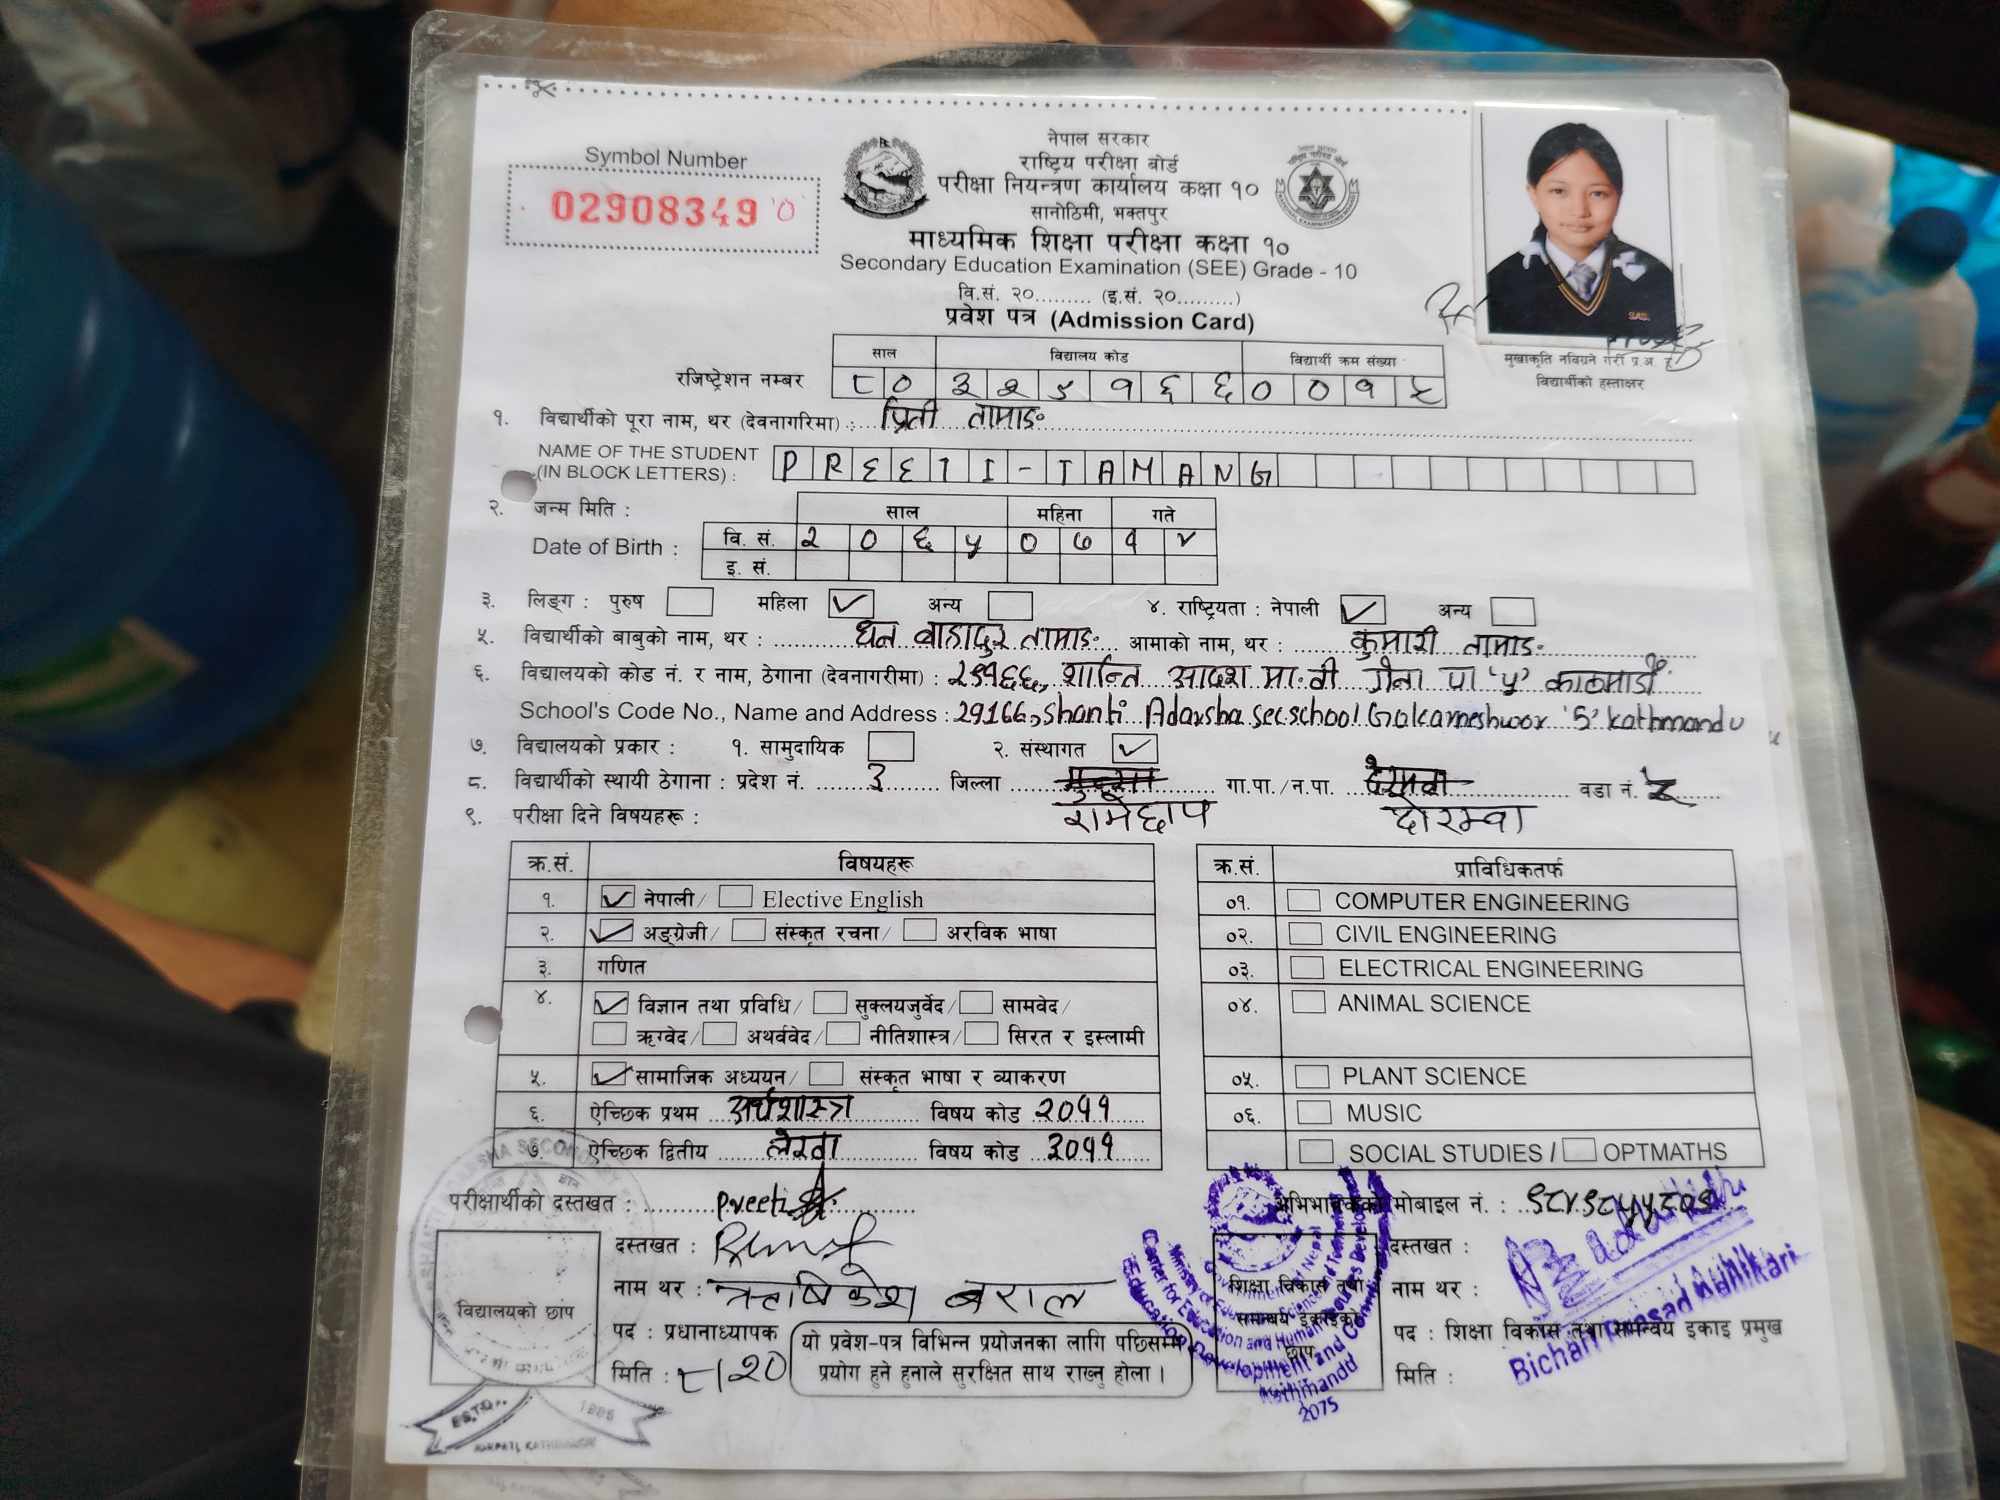 Symbol Number
02908349 'O'
नेपाल सरकार
राष्ट्रिय परीक्षा बोर्ड
परीक्षा नियन्त्रण कार्यालय कक्षा १०
सानोठिमी, भक्तपुर
माध्यमिक शिक्षा परीक्षा कक्षा १०
Secondary Education Examination (SEE) Grade - 10
वि.सं. २०......... (इ.सं. २०.........)
प्रवेश पत्र (Admission Card)
मुखाकृति नबिग्रने गरी प्र.अ. र
विद्यार्थीको हस्ताक्षर
साल विद्यालय कोड विद्यार्थी क्रम संख्या
रजिष्ट्रेशन नम्बर ८०
१. विद्यार्थीको पूरा नाम, थर (देवनागरिमा) : प्रिती तामाङ
NAME OF THE STUDENT
(IN BLOCK LETTERS) : PREETI-TAMANG
२. जन्म मिति : साल महिना गते
Date of Birth : वि. सं. २०६५०७१४
इ. सं.
३. लिङ्ग : पुरुष महिला ✓ अन्य ४. राष्ट्रियता : नेपाली ✓ अन्य
५. विद्यार्थीको बाबुको नाम, थर : धन बाहादुर तामाङ आमाको नाम, थर : कुमारी तामाङ
६. विद्यालयको कोड नं. र नाम, ठेगाना (देवनागरीमा) : २९१६६, शान्ति आदर्श मा.वी पा '५' काठमाडौं
School's Code No., Name and Address : 29166, Shanti Adarsha sec.school Gokarneshwor '5' kathmandu
७. विद्यालयको प्रकार : १. सामुदायिक २. संस्थागत ✓
८. विद्यार्थीको स्थायी ठेगाना : प्रदेश नं. ३ जिल्ला गा.पा./न.पा. वडा नं.
रामेछाप दोरम्बा
९. परीक्षा दिने विषयहरू :
क्र.सं. विषयहरू
१. ✓ नेपाली/ Elective English
२. ✓ अङ्ग्रेजी/ संस्कृत रचना/ अरविक भाषा
३. गणित
४. ✓ विज्ञान तथा प्रविधि/ सुक्लयजुर्वेद/ सामवेद/
ऋग्वेद/ अथर्ववेद/ नीतिशास्त्र/ सिरत र इस्लामी
५. ✓ सामाजिक अध्ययन/ संस्कृत भाषा र व्याकरण
६. ऐच्छिक प्रथम अर्थशास्त्र विषय कोड २०११
७. ऐच्छिक द्वितीय लेखा विषय कोड ३०११
क्र.सं. प्राविधिकतर्फ
०१. COMPUTER ENGINEERING
०२. CIVIL ENGINEERING
०३. ELECTRICAL ENGINEERING
०४. ANIMAL SCIENCE
०५. PLANT SCIENCE
०६. MUSIC
SOCIAL STUDIES / OPTMATHS
परीक्षार्थीको दस्तखत : Preeti
दस्तखत :
नाम थर : ऋषिकेश बराल
विद्यालयको छाप
पद : प्रधानाध्यापक
मिति : ८/२०
यो प्रवेश-पत्र विभिन्न प्रयोजनका लागि पछिसम्म
प्रयोग हुने हुनाले सुरक्षित साथ राख्नु होला ।
अभिभावकको मोबाइल नं. :
दस्तखत :
नाम थर :
शिक्षा विकास तथा
समन्वय इकाइको
छाप
पद : शिक्षा विकास तथा समन्वय इकाइ प्रमुख
मिति :
Bichari Prasad Adhikari
Kathmandu
2075
ESTD. 1995